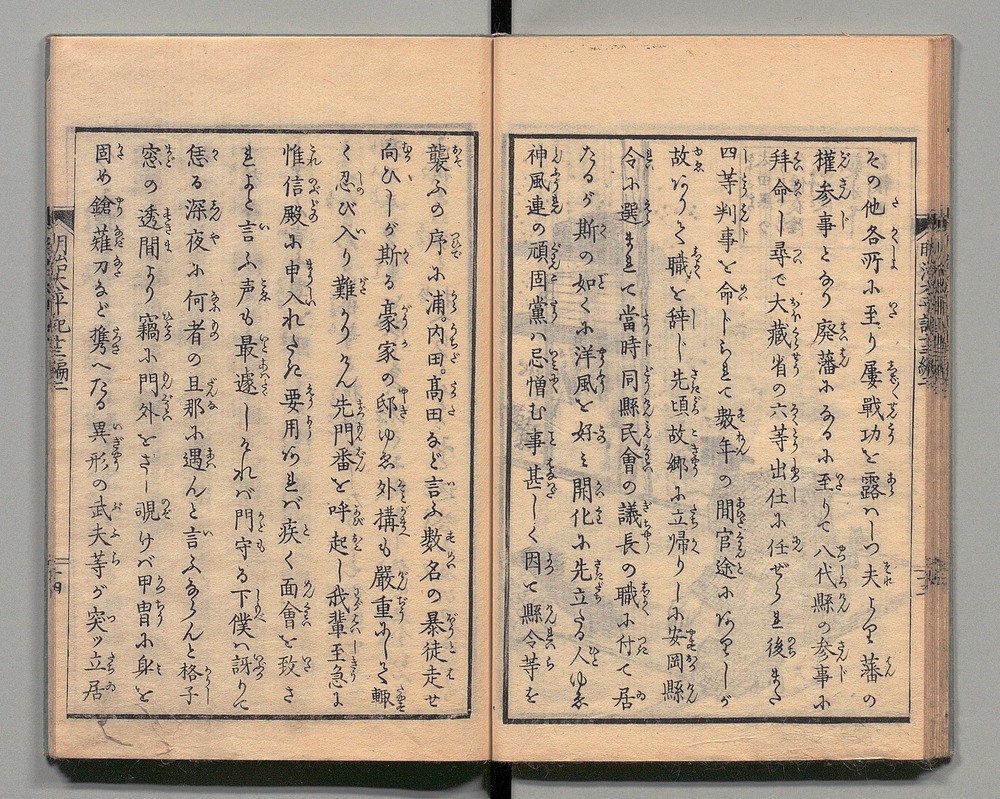 その他各所に至り屡戦功を露ハしつ夫より藩の
權参事となり廃藩になるに至りて八代縣の参事に
拜命し尋で大藏省の六等出仕に任ぜられ後また
四等判事を命ぜられて数年の間官途にありしが
故ありて職を辞し先頃故郷に立帰りしに安岡縣
令に選まれて當時同縣民會の議長の職に付て居
たるが斯の如くに洋風を好ミ開化に先立たる人ゆゑ
神風連の頑固黨ハ忌憎む事甚しく因て縣令等を
襲ふの序に浦。内田。髙田など言ふ数名の暴徒走せ
向ひしが斯る豪家の邸ゆゑ外構も嚴重にして輙
く忍び入り難かりけん先門番を呼起し我輩至急に
惟信殿に申入れたき要用あれバ疾く面會を致さ
れよと言ふ声も最遽しけれバ門守る下僕ハ訝りて
恁る深夜に何者の且那に遇んと言ふならんと格子
窓の透間より竊に門外をさし覗けバ甲冑に身を
固め鎗薙刀など携へたる異形の武夫等が突ッ立居
明治太平記十三編二